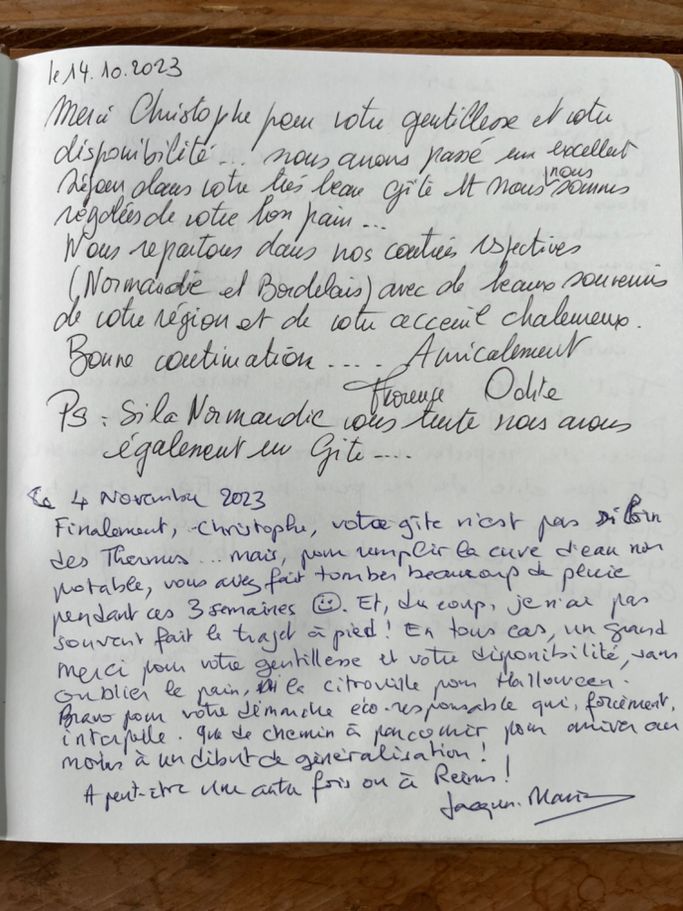 le 14.10.2023
Merci Christophe pour votre gentillesse et votre
disponibilité... nous avons passé un excellent
séjour dans votre très beau gîte et nous nous sommes
régalées de votre bon pain...
Nous repartons dans nos contrées respectives
(Normandie et Bordelais) avec de beaux souvenirs
de votre région et de votre acceuil chaleureux.
Bonne continuation .... Amicalement
Florence Odile
PS : Si la Normandie vous tente nous avons
également un Gîte....
Le 4 Novembre 2023
Finalement, Christophe, votre gîte n'est pas si loin
des Thermes... mais, pour remplir la cuve d'eau non
potable, vous avez fait tomber beaucoup de pluie
pendant ces 3 semaines ☺. Et, du coup, je n'ai pas
souvent fait le trajet à pied ! En tous cas, un grand
merci pour votre gentillesse et votre disponibilité, sans
oublier le pain, la citrouille pour Halloween.
Bravo pour votre démarche éco-responsable qui, forcément,
interpelle. Que de chemin à parcourir pour arriver au
moins à un début de généralisation !
A peut-être une autre fois ou à Reims !
Jacques-Marie